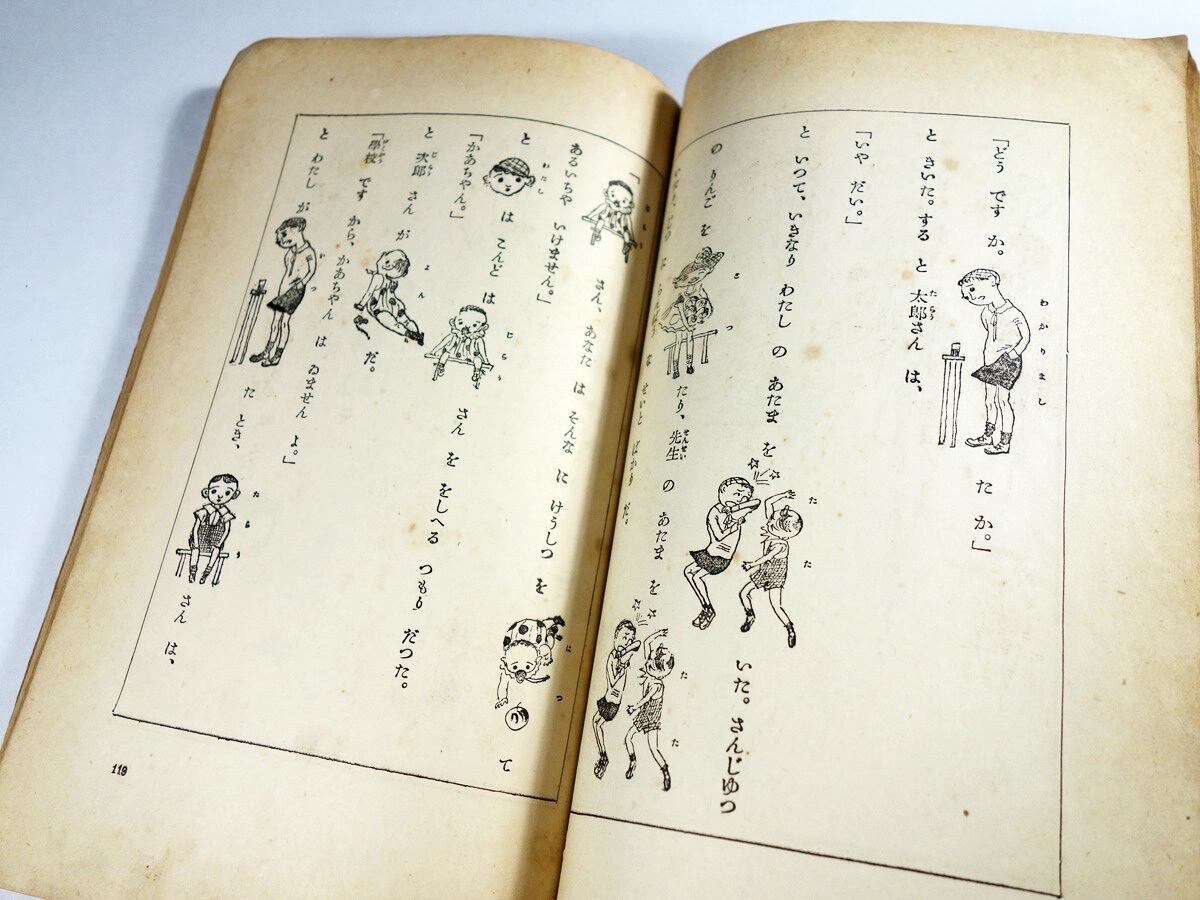 「どう です か。わかりまし た か。」
と きいた。する と 太郎さん は、
「いや だい。」
と いつて、いきなり わたし の あたま を たた いた。さんじゆつ
の りんご を たり、先生 の あたま を たた
せいと ばかり だ。
「 さん、あなた は そんな に けうしつ を て
あるいちや いけません。」
と わたし は こんど は じらう さん を をしへる つもり だつた。
「かあちやん。」
と 次郎 さん が よん だ。
「學校 です から、かあちやん は ゐません よ。」
と わたし が た とき、たらう さん は、
119